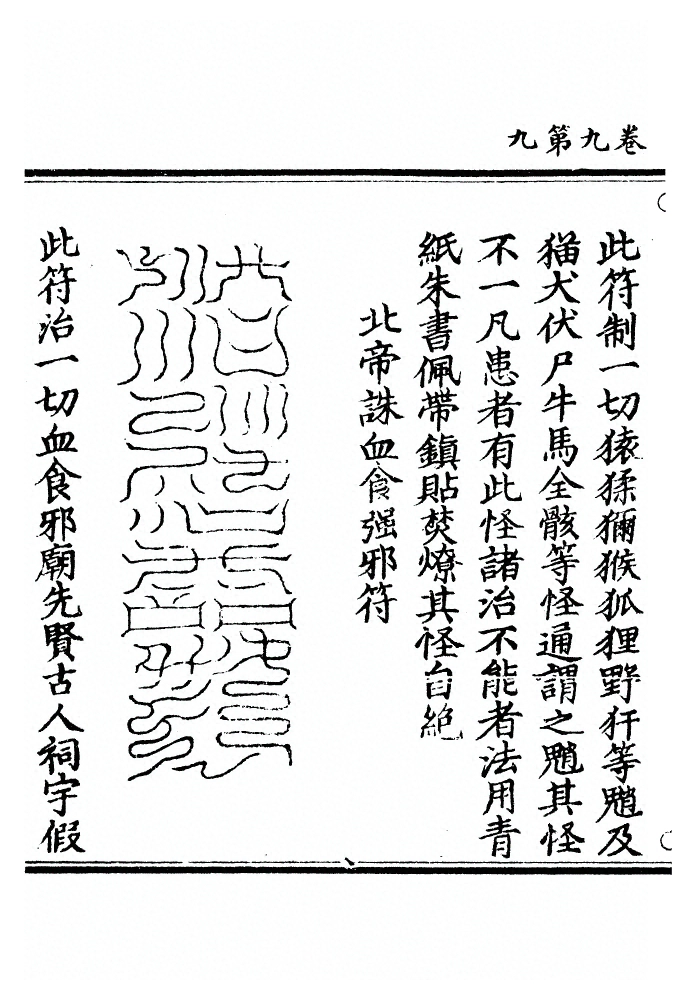 卷九第九
此符制一切猿猱獼猴狐狸野犴等魈及
猫犬伏尸牛馬全骸等怪通謂之魈其怪
不一凡患者有此怪諸治不能者法用青
紙朱書佩帶鎮貼焚燎其怪自絶
北帝誅血食强邪符
此符治一切血食邪廟先賢古人祠宇假